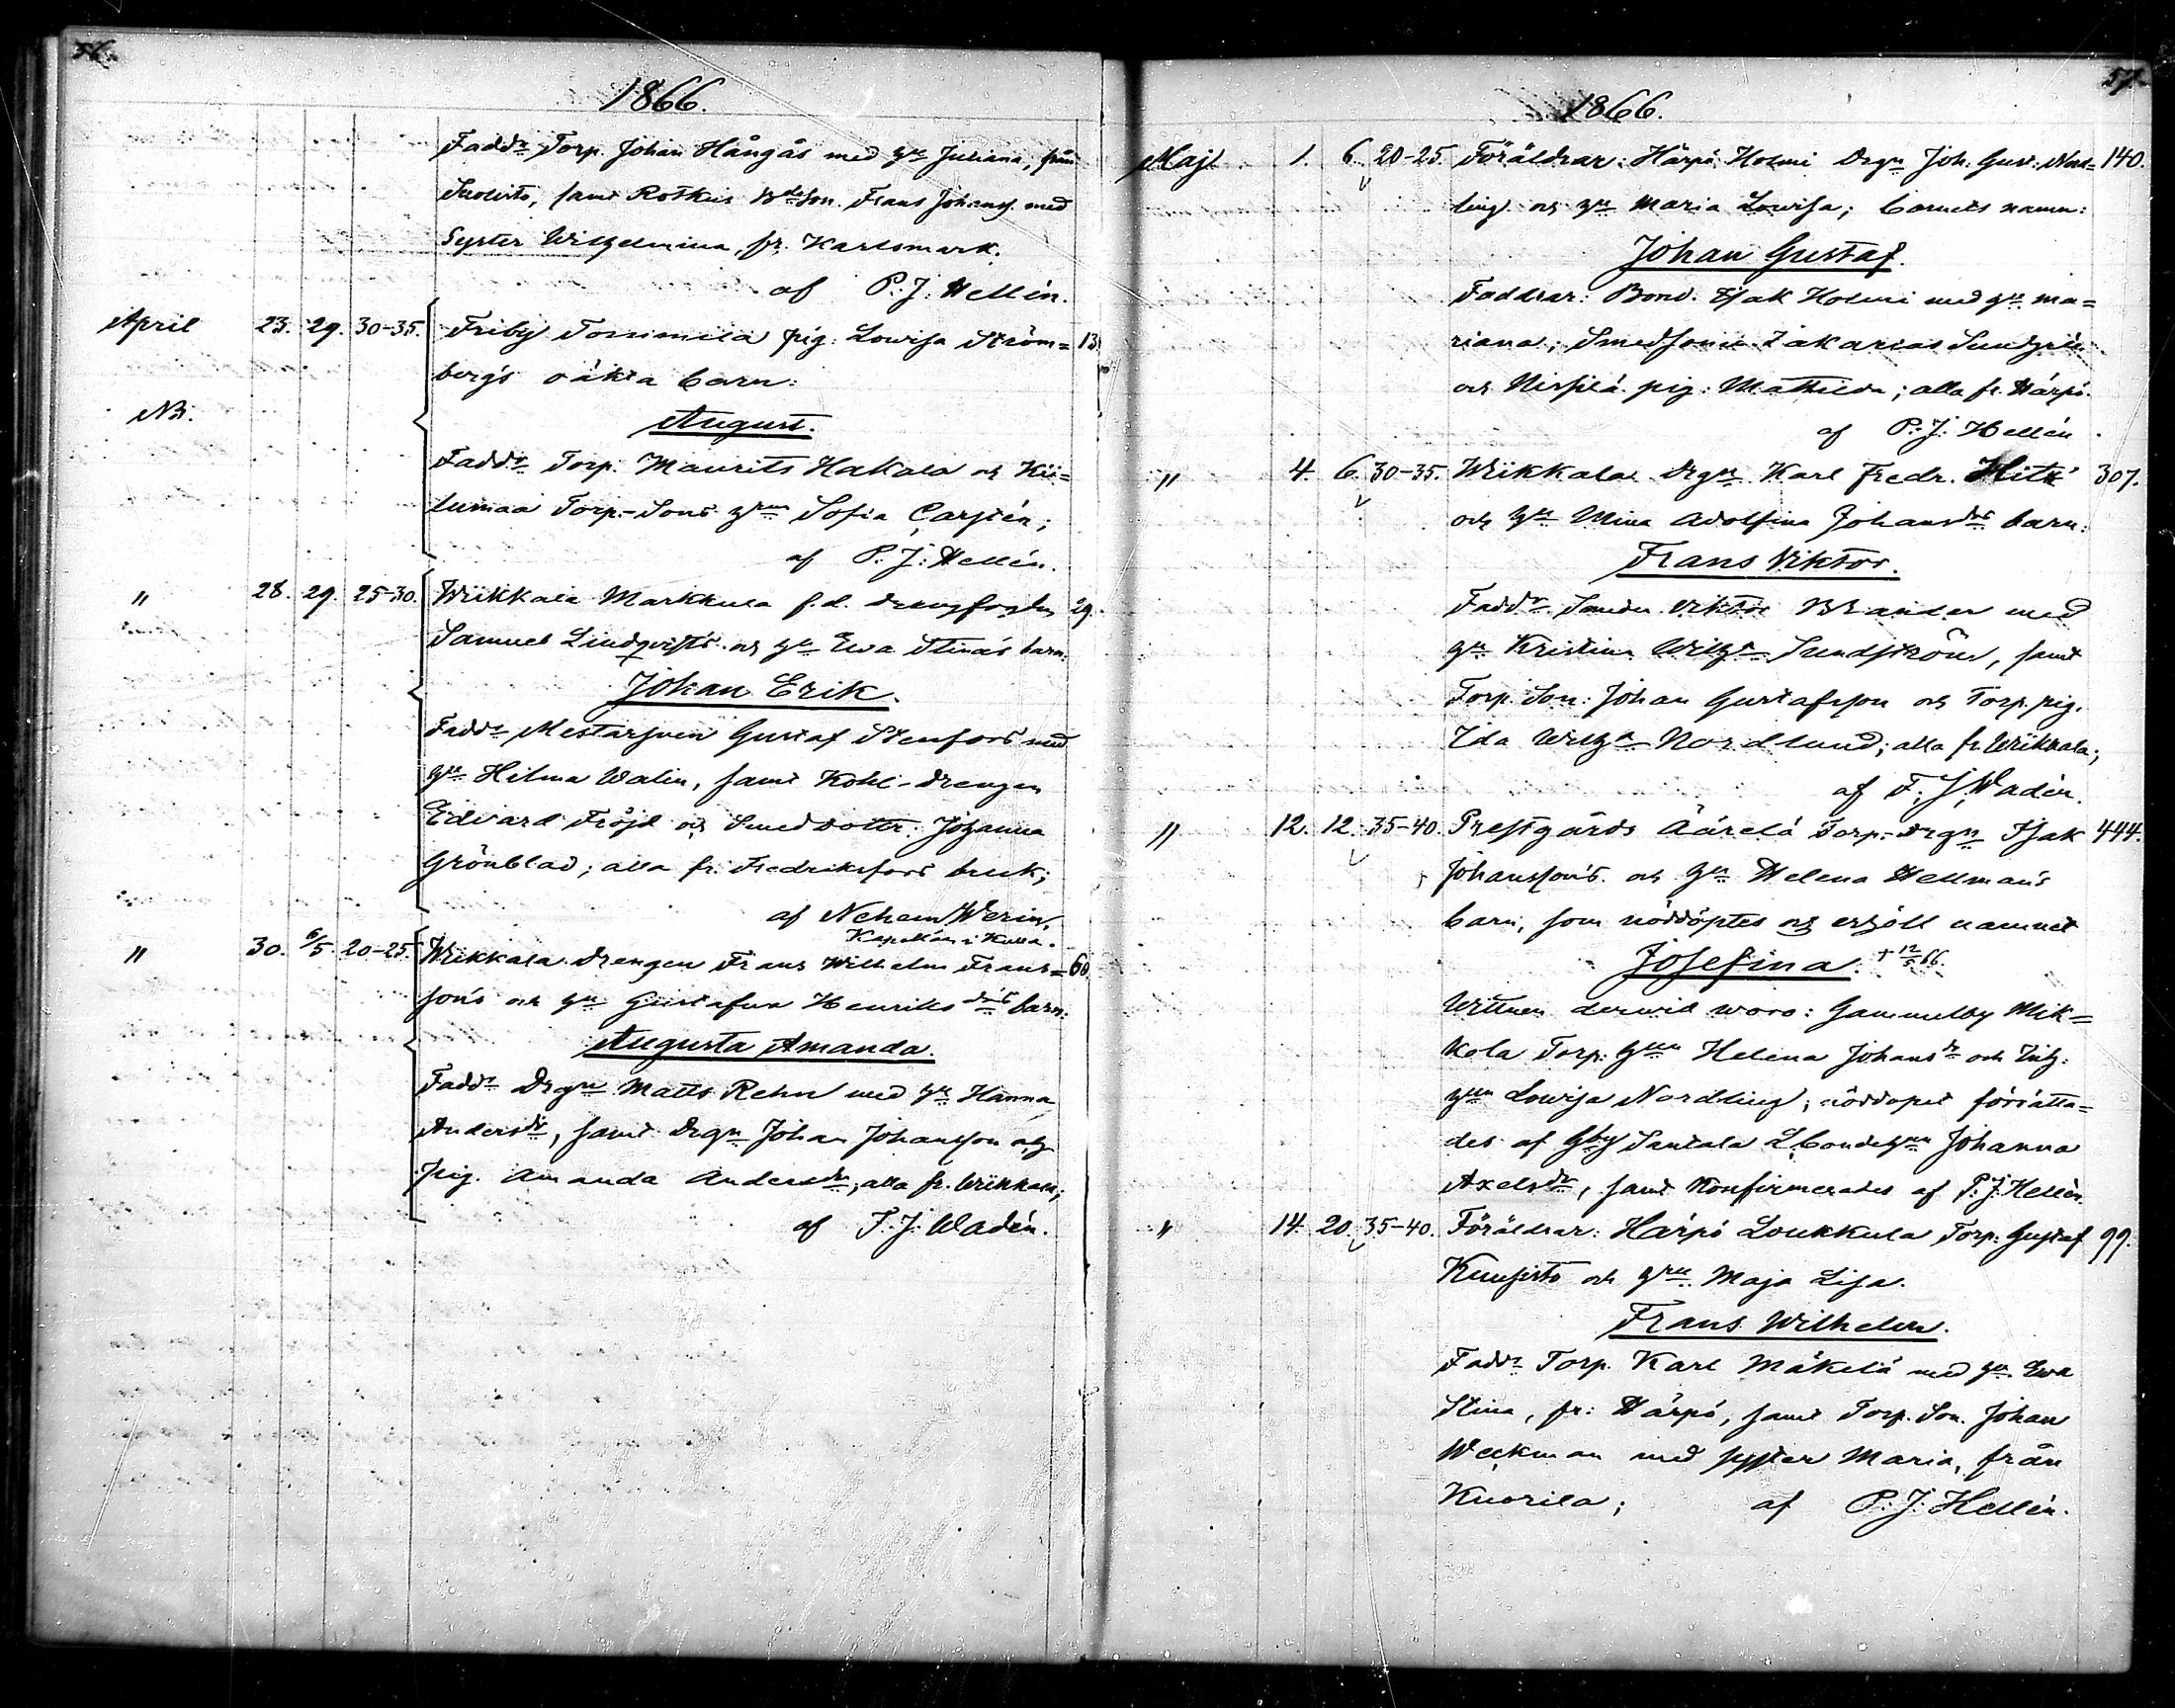 56.
1866.
Fadd:r Torp. Johan Hångås med h:u Juliana, från
samt Rothus B:deson. Frans Johanss. med
Syster Wilhelmina, fr. Karlsmark.
af P. J. Hellén.
April 23. 29. 30-35. Friby Tommila pig. Lovisa Ström= 13.
bergs oäkta barn:
NB.
August.
Fadd:r Torp. Maurits Hakala och Kii=
lumaa Torp.-Sons h:run Sofia
af P. J. Hellén.
" 28. 29. 25-30. Wiikkala Markkula f.d. drengfogden 29.
Samuel Lindqvists och h:u Ewa Stinas barn:
Johan Erik.
Fadd:r Mestarsven Gustaf Stenfors med
h:u Hilma Walin, samt Kohl-drengen
Edvard Fröjd och Smeddotter Johanna
Grönblad; alla fr. Fredriksfors bruk;
af Nehem. Werin,
Kapellan i Kulla.
" 30. 6/5. 20-25. Wiikkala drengen Frans Wilhelm Frans= 60.
sons och h:u Gustafva Henriks d:rs barn:
Augusta Amanda.
Fadd:r Drgn Matts Rehn med h:u Hanna
Anders d:r, samt drgn Johan Johansson och
pig. Amanda Anders d:r; alla fr. Wiikkala;
af F. J. Wadén.
57.
1866.
Maji 1. 6. 20-25. Föräldrar: Härpö Holmi Drgn Joh. Gust. Nord= 140.
ling och h:u Maria Lovisa; barnets namn:
Johan Gustaf.
Faddrar: Bond. Isak Holmi med h:u Ma=
riana; Smedsonen Zakarias Sundgrén
och pig: Mathilda; alla fr. Härpö.
af P. J. Hellén.
" 4. 6. 30-35. Wiikkala Drgn Karl Fredr. 307.
och h:u Mina Adolfina Johans drs barn:
Frans Viktor.
Fadd:r Viktor Brander med
h:u Kristina Wilh:a Sundström, samt
Torp. Son: Johan Gustafsson och Torp. pig.
Ida Wilh:a Nordlund; alla fr. Wiikkala;
af F. J. Wadén.
" 12. 12. 35-40. Prestgårds Äärelä Torp.-Drgn Isak 444.
Johanssons och h:u Helena Hellmans
barn, som nöddöptes och erhöll namnet
Josefina. + 12/5 66.
Wittnen dervid woro: Gammelby Mik=
kola Torp: h:run Helena Johans d:r och Inh:
h:run Lovisa Nordling; nöddopet förrätta=
des af Gby Santala L.bondeh:un Johanna
Axels d:r, samt Konfirmerades af P. J. Hellén.
" 14. 20. 35-40. Föräldrar: Härpö Loukkula Torp: Gustaf 99.
Kuusisto och h:ru Maja Lisa.
Frans Wilhelm.
Fadd:r Torp. Karl Mäkelä med h:u Ewa
Stina, fr: Härpö, samt Torp. Son. Johan
Weckman med syster Maria, från
Knorila; af P. J. Hellén.